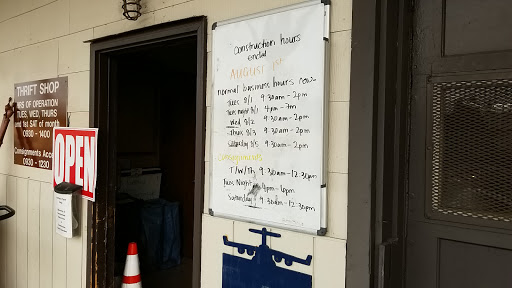 THRIFT SHOP
HRS OF OPERATION
TUES, WED, THURS
and 1st SAT of month
0930 - 1400
Consignments Accepted
0930 - 1230
OPEN
Construction hours
ended
AUGUST 1st
normal business hours now
Tues 8/1 9:30am - 2pm
Tues night 8/1 4pm - 7pm
Wed 8/2 9:30am - 2pm
Thurs 8/3 9:30am - 2pm
Saturday 8/5 9:30am - 2pm
Consignments
T/W/Th 9:30am - 12:30pm
Tues Night 4pm - 6pm
Saturday 9:30am - 12:30pm